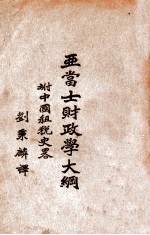 亞當士財政學大綱
附中國租稅史畧
劉秉麟譯